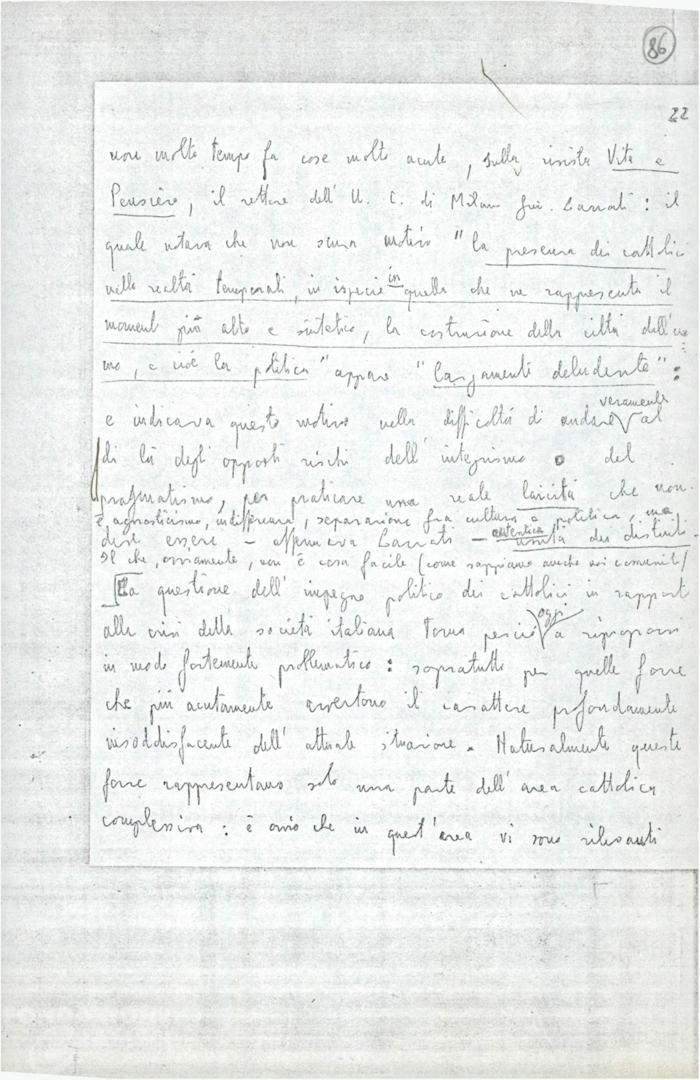 86
22
non molto tempo fa cose molto acute, sulla rivista Vita e
Pensiero, il rettore dell'U. C. di Milano Giu. Lazzati : il
quale notava che non senza motivo "la presenza dei cattolici
nelle realtà temporali, in ispecie in quella che ne rappresenta il
momento più alto e sintetico, la costruzione della città dell'uo=
mo, e cioè la politica" appare "largamente deludente":
e indicava questo motivo nella difficoltà di andare veramente al
di là degli opposti rischi dell'integrismo o del
pragmatismo, per praticare una reale laicità che non
è agnosticismo, indifferenza, separazione fra cultura e politica, ma
deve essere – affermava Lazzati – autentica unità dei distinti.
Il che, ovviamente, non è cosa facile (come sappiamo anche noi comunisti)
La questione dell'impegno politico dei cattolici in rapporto
alla crisi della società italiana torna perciò oggi a riproporsi
in modo fortemente problematico : sopratutto per quelle forze
che più acutamente avvertono il carattere profondamente
insoddisfacente dell'attuale situazione. Naturalmente queste
forze rappresentano solo una parte dell'area cattolica
complessiva : è ovvio che in quest'area vi sono rilevanti